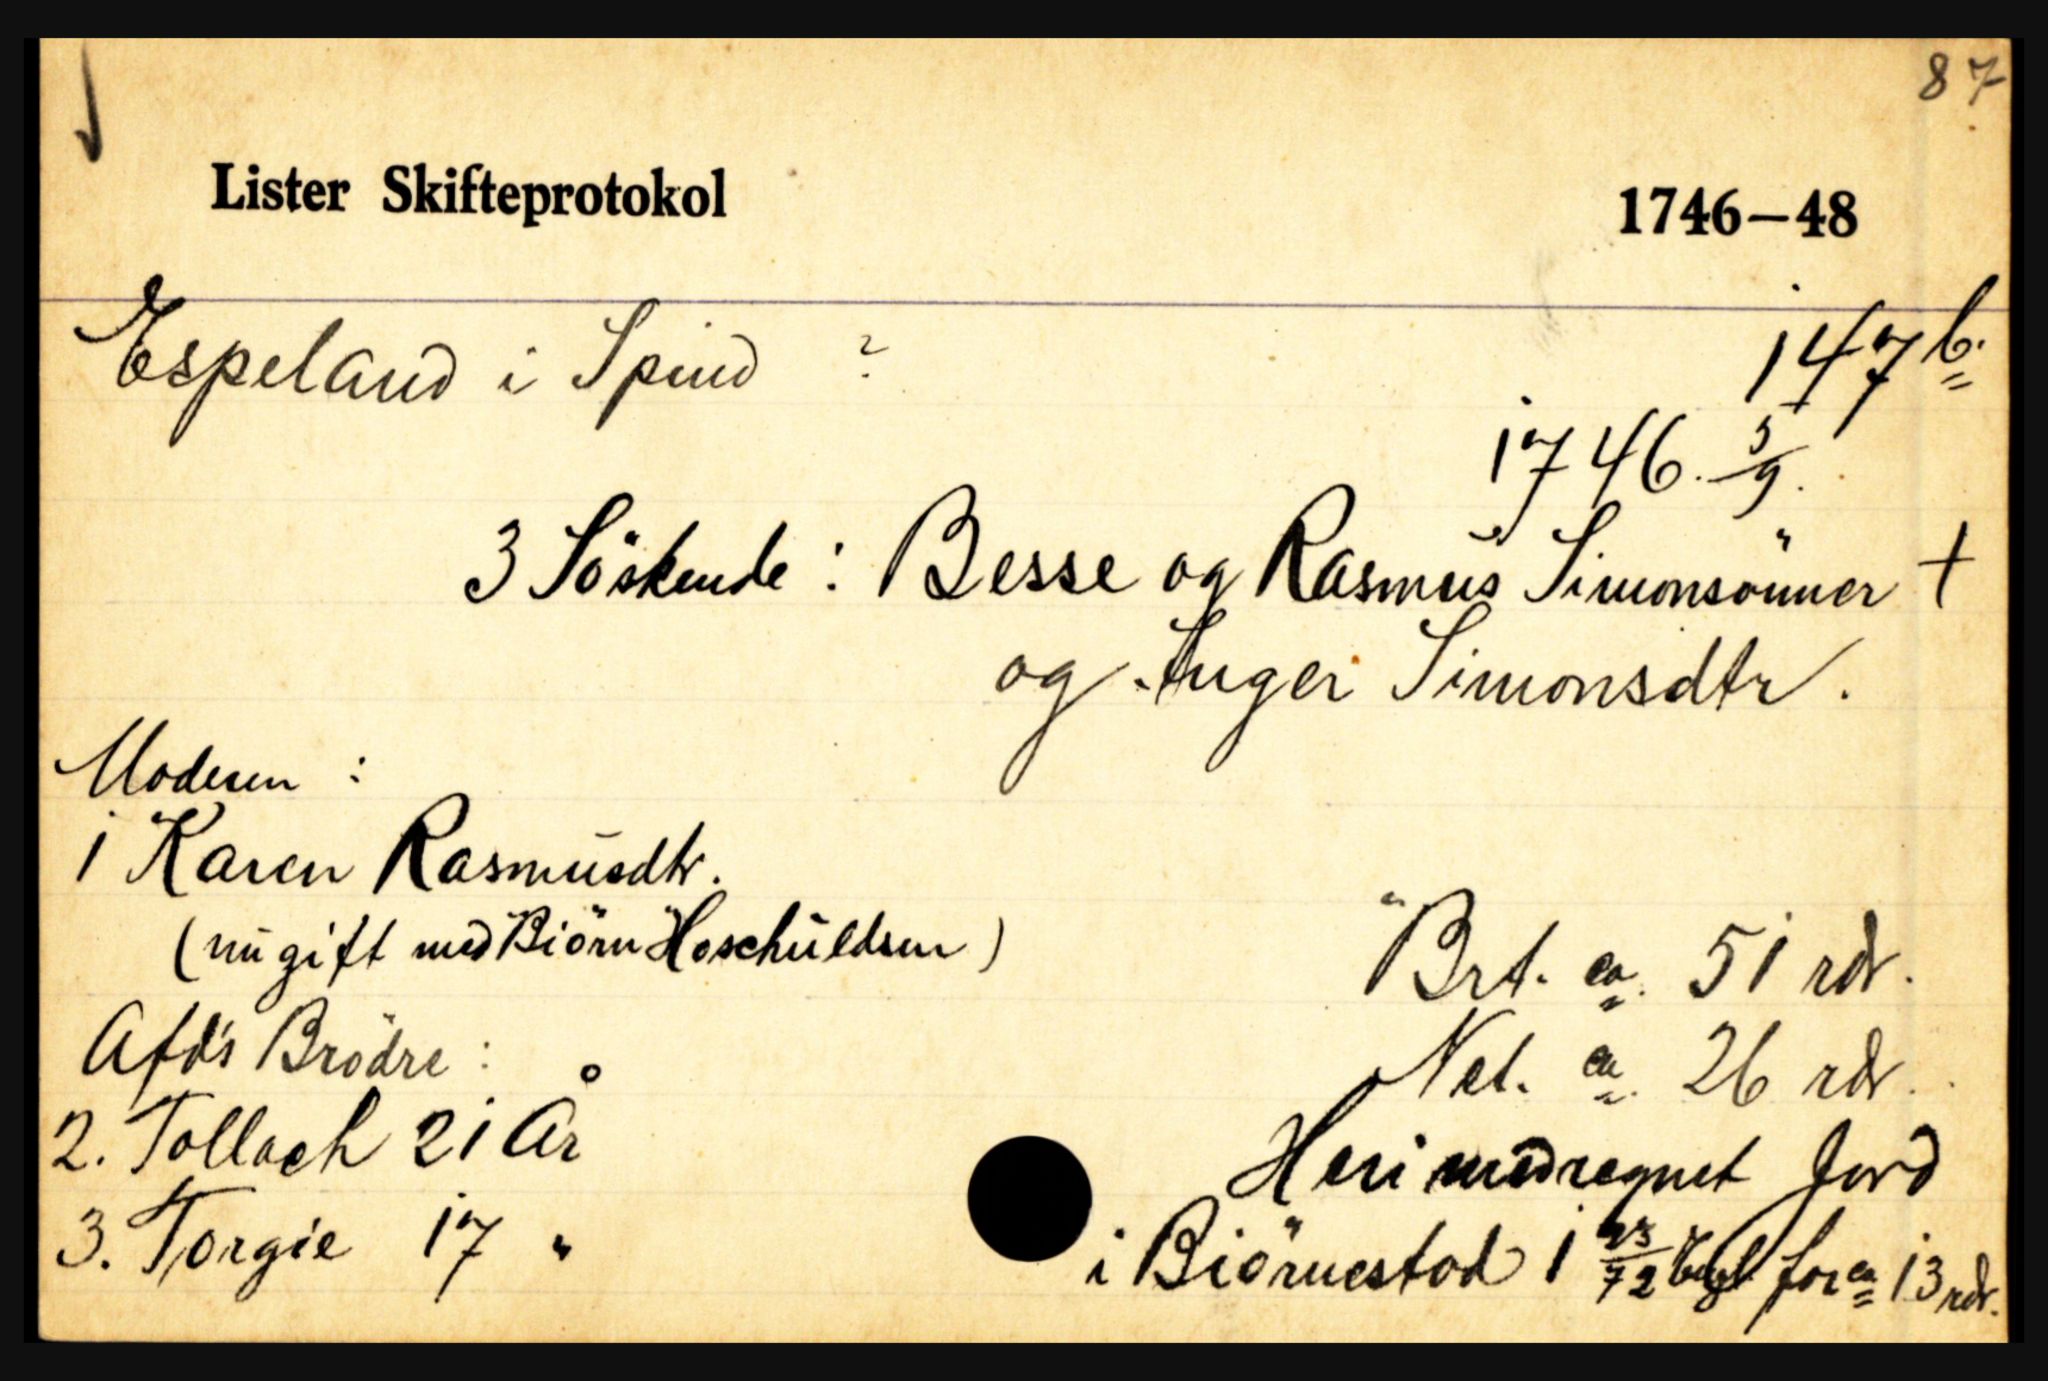 87
Lister Skifteprotokol 1746–48
Espeland i Spind ? 147 b.
1746. 5/9.
3 Söskende : Besse og Rasmus Simonsönner +
og Inger Simonsdtr.
Moderen :
1 Karen Rasmusdtr.
(nu gift med Biörn Hoschuldsen)
Brt. ca. 51 rdr.
Afd's Brödre :
Net. ca. 26 rdr.
2. Tollach 21 År
Heri medregnet Jord
3. Torgie 17 "
i Biörnestad 1 /72 for ca 13 rdr.